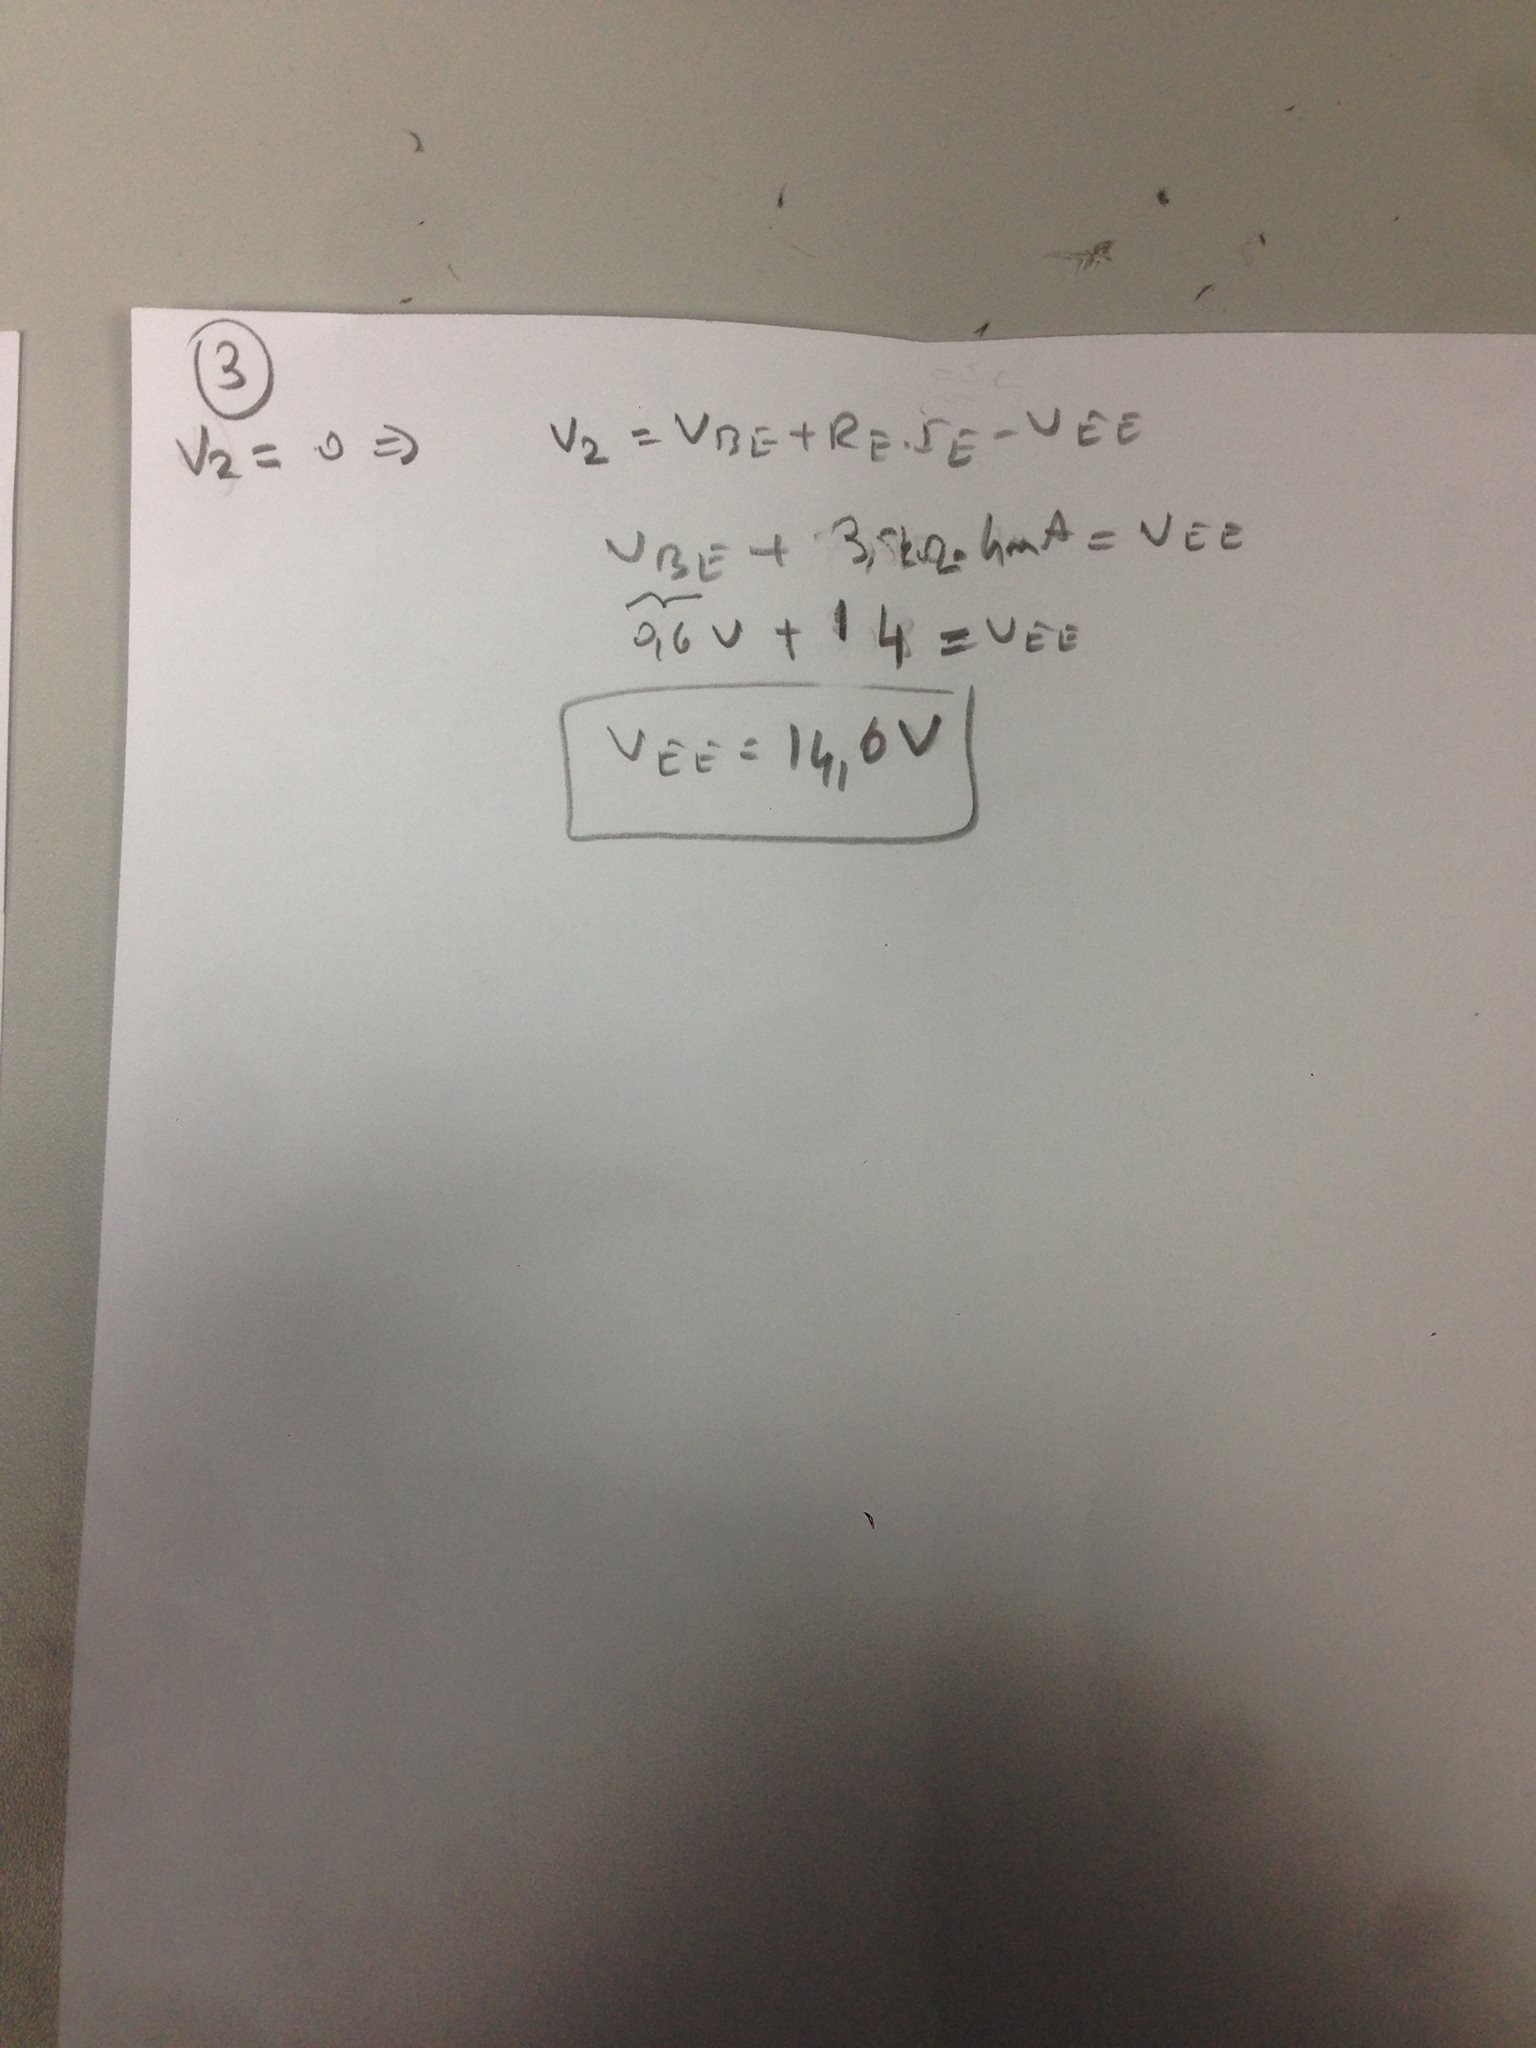 3
V2 = 0 ⇒ V2 = VBE + RE.IE - VEE
VBE + 3,5kΩ.4mA = VEE
0,6V + 14 = VEE
VEE = 14,6V